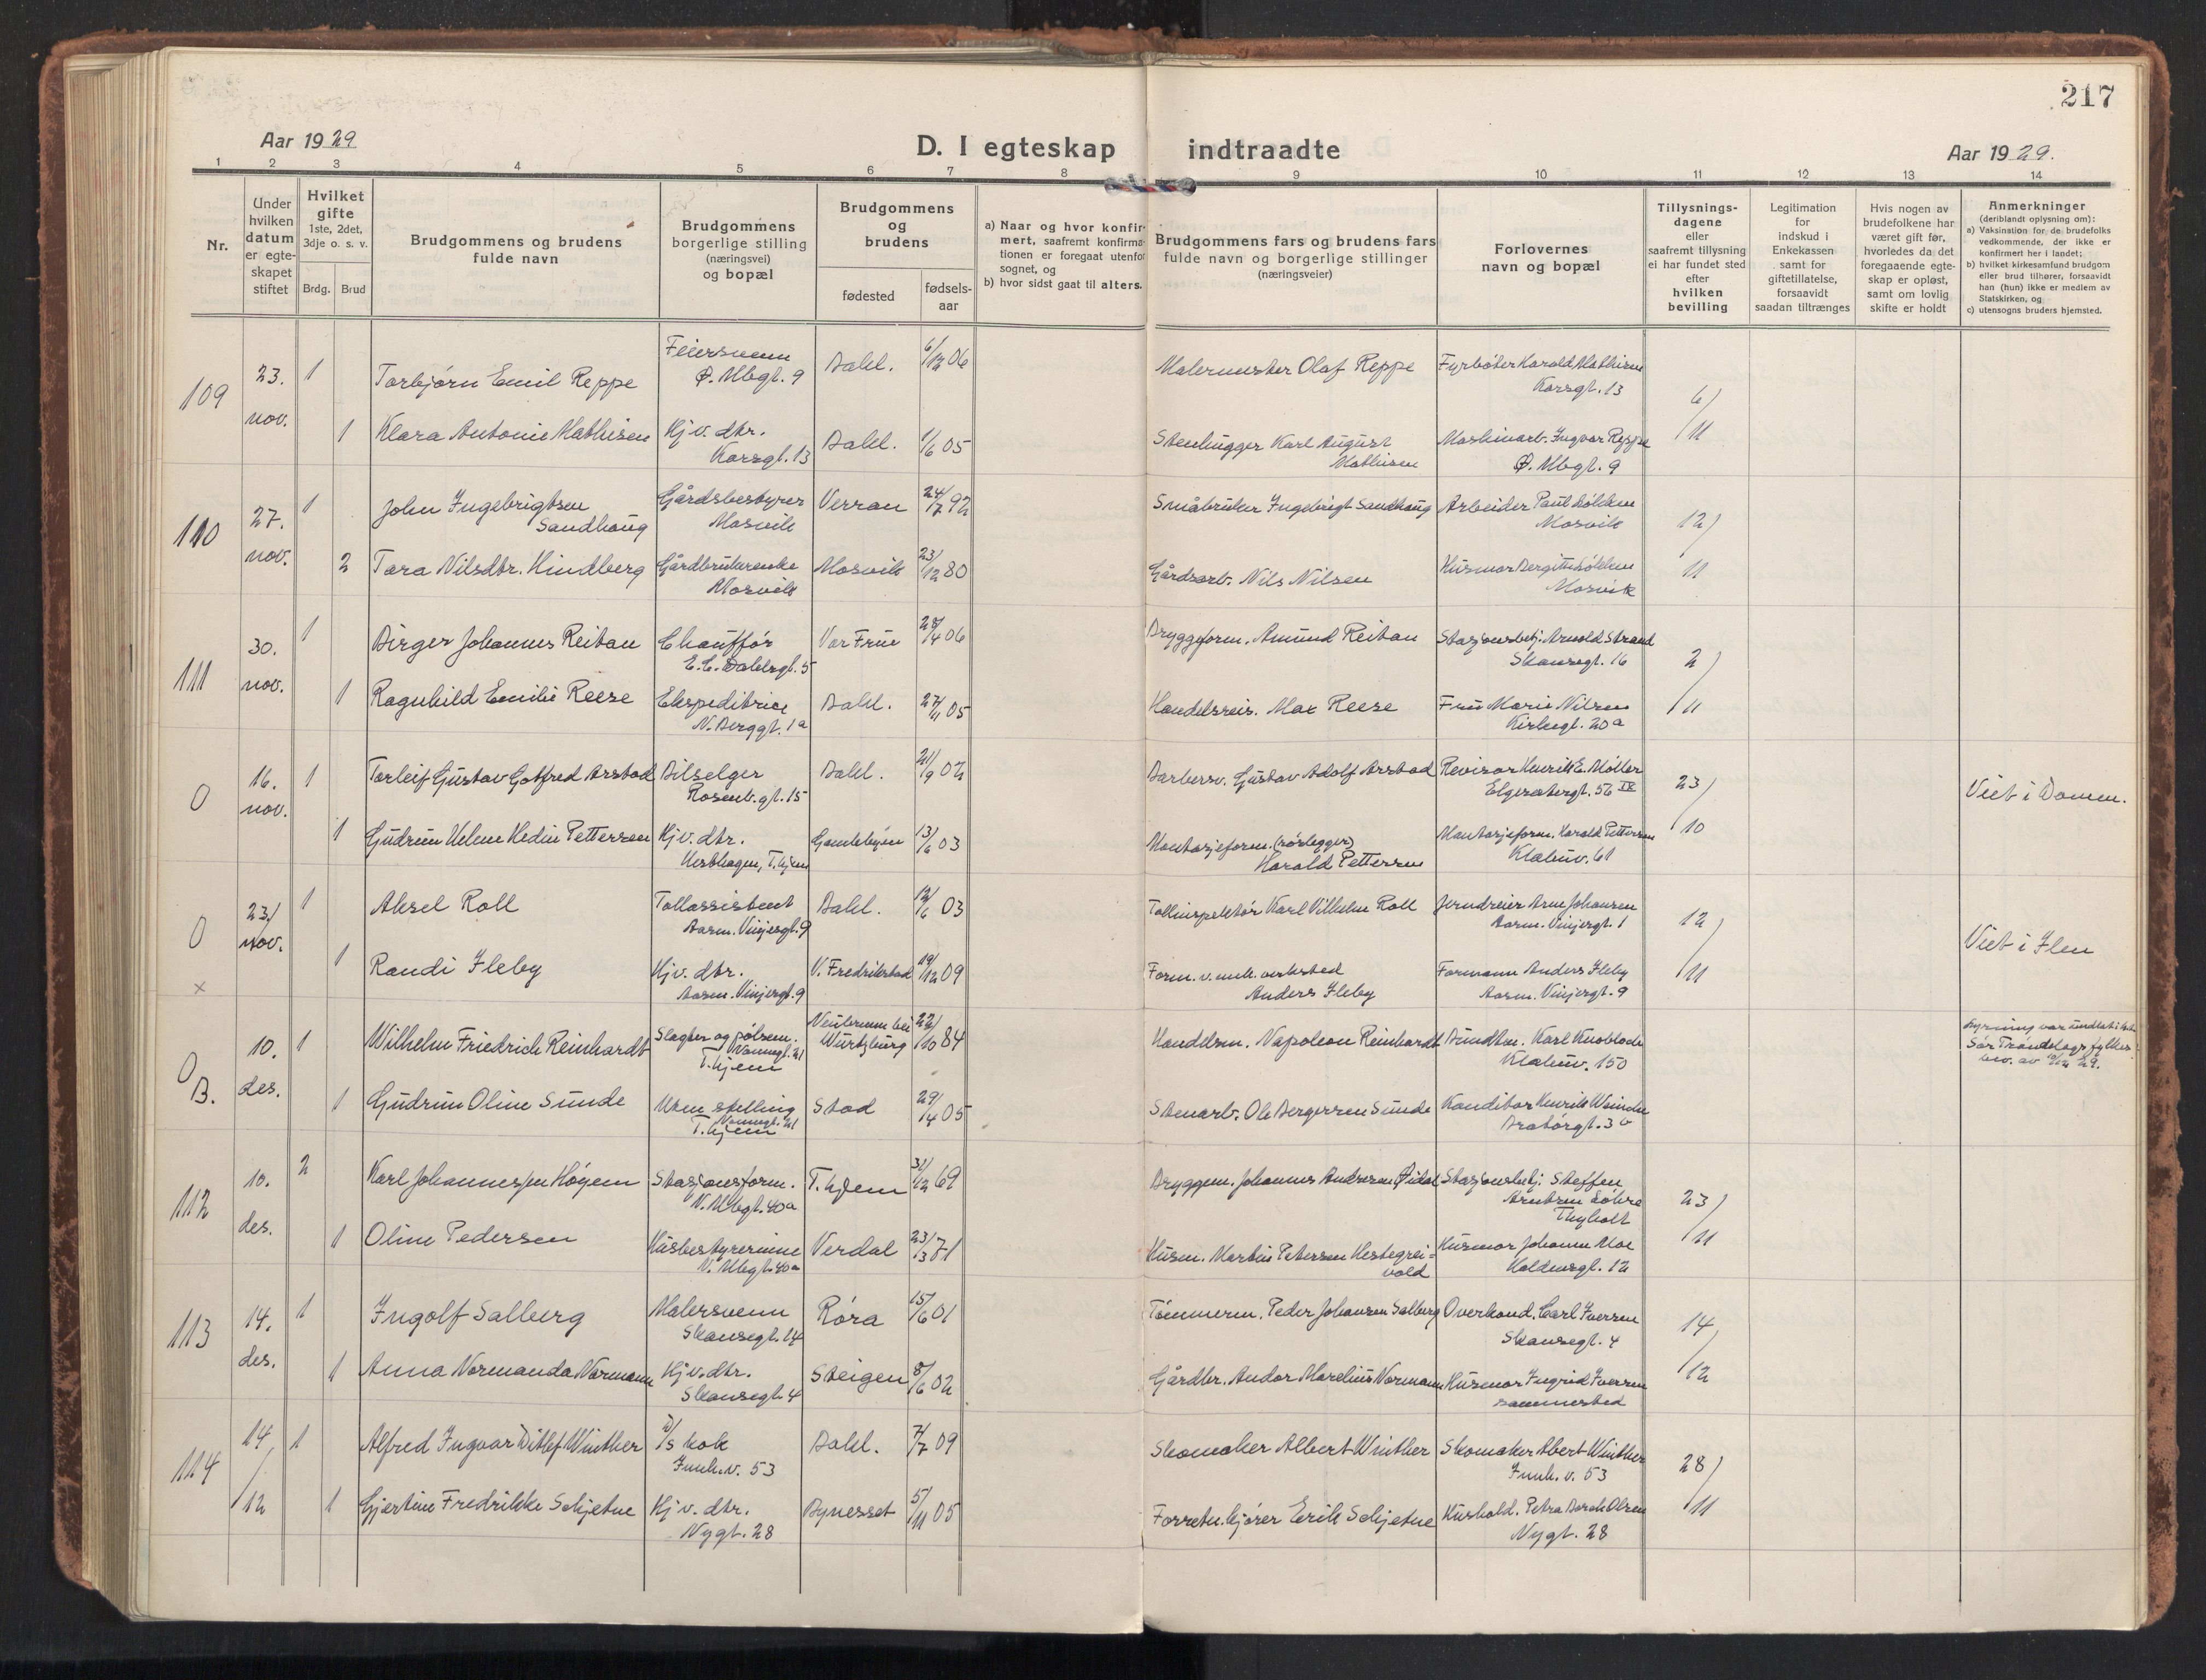 217
Aar 1929
D. I egteskap indtraadte
Aar 1929.
1 2 3 4 5 6 7 8 9 10 11 12 13 14
Nr.
Under hvilken datum er egteskapet stiftet
Hvilket gifte
1ste, 2det, 3dje o. s. v.
Brdg. Brud
Brudgommens og brudens
fulde navn
Brudgommens
borgerlige stilling
(næringsvei)
og bopæl
Brudgommens
og
brudens
fødested
fødselsaar
a) Naar og hvor konfirmert, saafremt konfirmationen er foregaat utenfor sognet, og
b) hvor sidst gaat til alters.
Brudgommens fars og brudens fars
fulde navn og borgerlige stillinger
(næringsveier)
Forlovernes
navn og bopæl
Tillysningsdagene
eller
saafremt tillysning
ei har fundet sted
efter
hvilken
bevilling
Legitimation
for
indskud i
Enkekassen
samt for
giftetillatelse,
forsaavidt
saadan tiltrænges
Hvis nogen av
brudefolkene har
været gift før,
hvorledes da det
foregaaende egteskap er opløst,
samt om lovlig
skifte er holdt
Anmerkninger
(deriblandt oplysning om):
a) Vaksination for de brudefolks vedkommende, der ikke er konfirmert her i landet;
b) hvilket kirkesamfund brudgom eller brud tilhører, forsaavidt han (hun) ikke er medlem av Statskirken, og
c) utensogns bruders hjemsted.
109 23. nov. 1 Torbjørn Emil Reppe Feiersvenn Ø. Mbgt. 9 Bakl. 6/12 06 Malermester Olaf Reppe Fyrbøter Harald Mathisen Korsgt. 13 6/11
1 Klara Antonie Mathisen Hjv. dtr. Korsgt. 13 Bakl. 1/6 05 Stenhugger Karl August Mathisen Maskinarb. Ingvar Reppe Ø. Mbgt. 9
110 27. nov. 1 John Ingebrigtsen Sandhaug Gårdsbestyrer Mosvik Verran 24/7 92 Småbruker Ingebrigt Sandhaug Arbeider Paul Mosvik 12/11
2 Tora Nilsdtr. Hindberg Gårdbrukerenke Mosvik Mosvik 23/12 80 Gårdsarb. Nils Nilsen Husmor Mosvik
111 30. nov. 1 Birger Johannes Reitan Chauffør E.C. Dahlsgt. 5 Vor Frue 28/4 06 Bryggeform. Amund Reitan Stasjonsbetj. Arnold Strand Skansegt. 16 2/11
1 Ragnhild Emilie Reese Ekspeditrice N. Berggt. 1a Bakl. 27/11 05 Handelsreis. Max Reese Fru Marie Nilsen Kirkegt. 20a
0 16. nov. 1 Torleif Gustav Gotfred Arstad Bilselger Rosenb.gt. 15 Bakl. 21/9 02 Barbersv. Gustav Adolf Arstad Revisor Henrik E. Møller Elgesetergt. 56 IV 23/10 Viet i Domen.
1 Gudrun Helene Hedin Pettersen Hjv. dtr. Hesthagen, T.hjem Gamlebyen 13/6 03 Montasjeform. (rørlegger) Harald Pettersen Montasjeform. Harald Pettersen Klæbuv. 61
0 23/ nov. 1 Aksel Roll Tollassistent Aasm. Vinjesgt. 9 Bakl. 12/6 03 Tollinspektør Karl Vilhelm Roll Jerndreier Arne Johansen Aasm. Vinjesgt. 1 12/11 Viet i Ilen
x 1 Randi Ileby Hjv. dtr. Aasm. Vinjesgt. 9 V. Fredrikstad 19/12 09 Form. v. mek. verksted Anders Ileby Formann Anders Ileby Aasm. Vinjesgt. 9
0 B. 10. des. 1 Wilhelm Friedrich Reinhardt Slagter og pølsem. Vonnegt. 21 T.hjem Neubrunn bei Würtzburg 22/10 84 Handelsm. Napoleon Reinhardt Bundtm. Karl Knobloch Klæbuv. 150 Sør Trøndelags fylkes bev. av 29.
1 Gudrun Oline Sunde Uten stilling Vonnegt. 21 T.hjem Stod 29/4 05 Stenarb. Ole Bergersen Sunde Konditor Henrik Bratørgt. 3b
112 10. des. 2 Karl Johannessen Høyem Stasjonsform. N. Mbgt. 40a T.hjem 31/12 69 Bryggem. Johannes Andresen Stasjonsbetj. Steffen Arntsen Løkse Tyholt 23/11
1 Oline Pedersen Husbestyrerinne N. Mbgt. 40a Verdal 23/3 71 Husm. Martin Petersen Hestegreivold Husmor Johanne Moe Koldensgt. 12
113 14. des. 1 Ingolf Salberg Malersvenn Skansegt. 14 Røra 15/6 01 Tømmerm. Peder Johansen Salberg Overkond. Carl Iversen Skansegt. 4 14/12
1 Anna Normanda Normann Hjv. dtr. Skansegt. 4 Steigen 8/6 02 Gårdbr. Andor Marelius Normann Husmor Ingrid Iversen sammested
114 14/12 1 Alfred Ingvar Ditlef Winther D/S kok Innh.v. 53 Bakl. 7/7 09 Skomaker Albert Winther Skomaker Albert Winther Innh. v. 53 28/11
1 Gjertine Fredrikke Schjetne Hjv. dtr. Nygt. 28 Bynesset 5/11 05 Forretn.kjører Erik Schjetne Hushold. Petra Olsen Nygt. 28